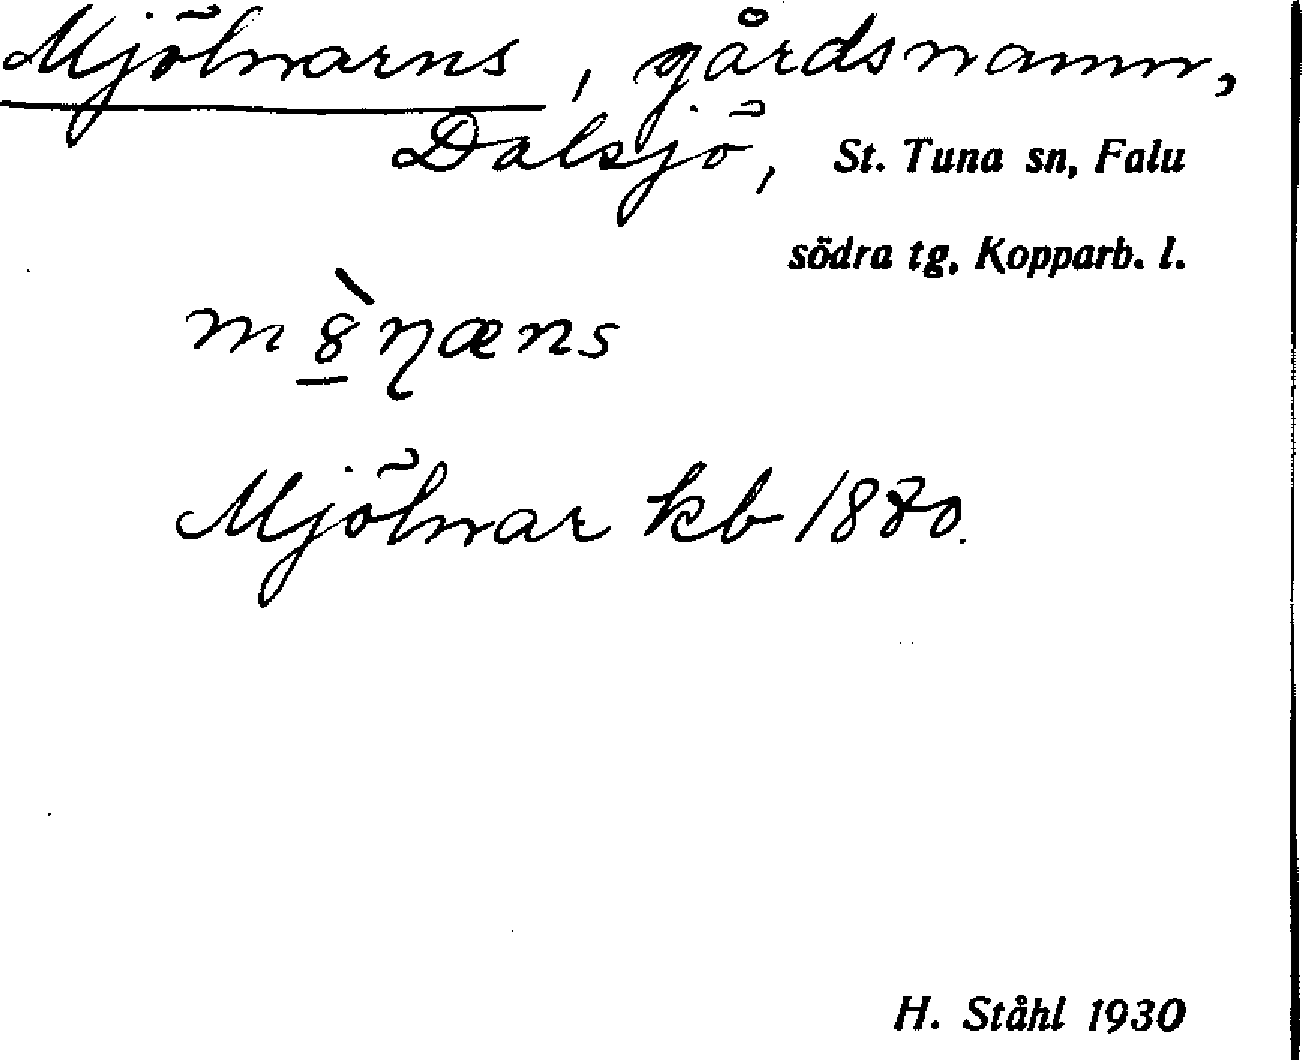 Mjölnarns, gårdsnamn,
Dalsjö, St. Tuna sn, Falu
södra tg, Kopparb. l.
Mjölnar kb 1880.
H. Ståhl 1930